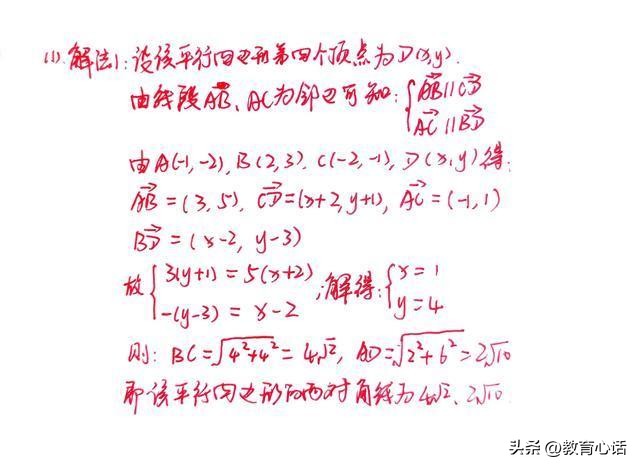 (1).解法1:设该平行四边形第四个顶点为D(x,y).
由线段AB、AC为邻边可知:{AB∥CD
AC∥BD
由A(-1,-2),B(2,3),C(-2,-1),D(x,y)得:
AB=(3,5),CD=(x+2,y+1),AC=(-1,1)
BD=(x-2,y-3)
故{3(y+1)=5(x+2) ;解得:{x=1
-(y-3)=x-2 y=4
则:BC=√4²+4²=4√2,AD=√2²+6²=2√10
即该平行四边形的两对角线为4√2、2√10.
头条 @教育心话